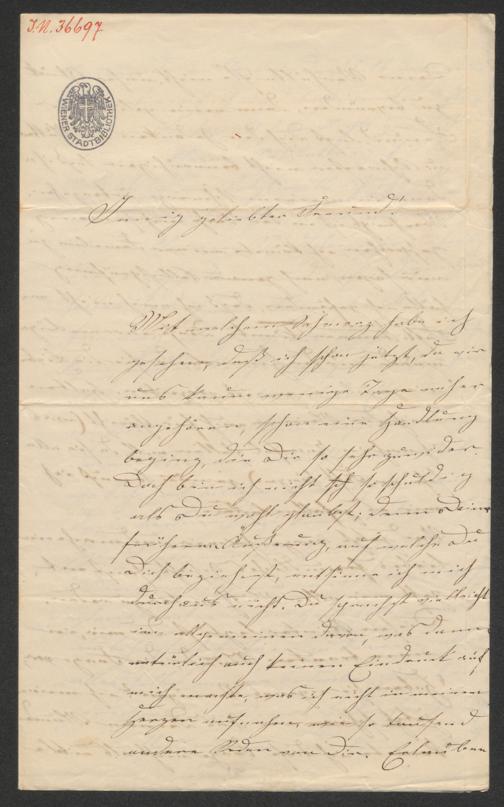 I.N. 36697
WIENER STADTBIBLIOTHEK
Innig geliebter Freund!
Mit welchem Schmerz habe ich
gesehen, daß ich schon jetzt, da wir
uns kaum wenige Tage näher
angehören, schon eine Handlung
beging, die Dir so sehr zuwider.
Doch bin ich nicht so schuldig
als Du wohl glaubst; denn Deiner
früheren Äußerung, auf welche Du
Dich beziehest, entsinne ich mich
durchaus nicht. Du sprachst vielleicht
im allgemeinen davon, was dann
natürlich auch keinen Eindruck auf
mich machte, was ich nicht in meinem
Herzen aufnahm, wie so tausend
andere Reden von Dir. Erlauben